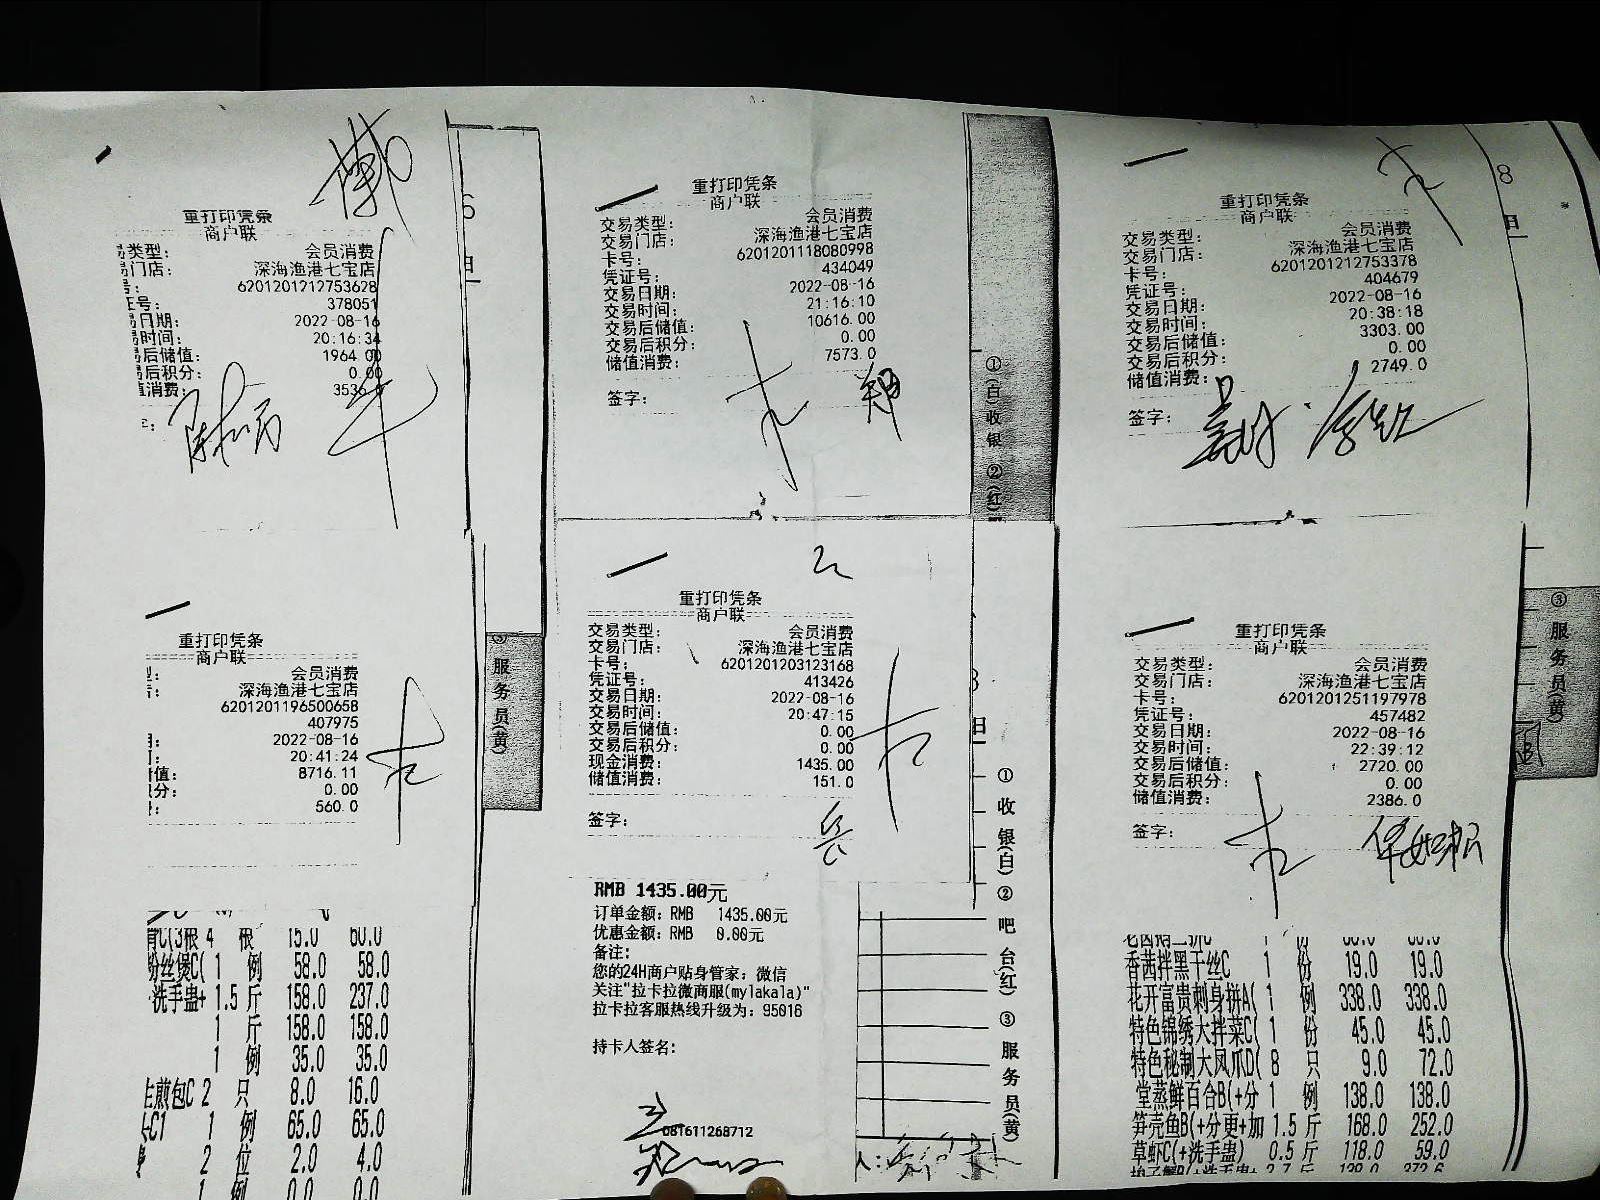 重打印凭条
商户联
类型： 会员消费
门店： 深海渔港七宝店
号： 6201201212753628
证号： 378051
日期： 2022-08-16
时间： 20:16:34
后储值： 1964.00
后积分： 0.00
值消费： 3536.0
字：
重打印凭条
商户联
交易类型： 会员消费
交易门店： 深海渔港七宝店
卡号： 6201201118080998
凭证号： 434049
交易日期： 2022-08-16
交易时间： 21:16:10
交易后储值： 10616.00
交易后积分： 0.00
储值消费： 7573.0
签字： 郑
①(白)收银 ②(红)
重打印凭条
商户联
交易类型： 会员消费
交易门店： 深海渔港七宝店
卡号： 6201201212753378
凭证号： 404679
交易日期： 2022-08-16
交易时间： 20:38:18
交易后储值： 3303.00
交易后积分： 0.00
储值消费： 2749.0
签字：
6
日
8
日
重打印凭条
商户联
型： 会员消费
店： 深海渔港七宝店
6201201196500658
407975
期： 2022-08-16
间： 20:41:24
储值： 8716.11
积分： 0.00
费： 560.0
③服务员(黄)
重打印凭条
商户联
交易类型： 会员消费
交易门店： 深海渔港七宝店
卡号： 6201201203123168
凭证号： 413426
交易日期： 2022-08-16
交易时间： 20:47:15
交易后储值： 0.00
交易后积分： 0.00
现金消费： 1435.00
储值消费： 151.0
签字：
日
①收银(白)②吧台(红)③服务员(黄)
重打印凭条
商户联
交易类型： 会员消费
交易门店： 深海渔港七宝店
卡号： 6201201251197978
凭证号： 457482
交易日期： 2022-08-16
交易时间： 22:39:12
交易后储值： 2720.00
交易后积分： 0.00
储值消费： 2386.0
签字：
③服务员(黄)
C(3根 4 根 15.0 60.0
粉丝煲C( 1 例 58.0 58.0
洗手蛊+ 1.5 斤 158.0 237.0
1 斤 158.0 158.0
1 例 35.0 35.0
生煎包C 2 只 8.0 16.0
C1 1 例 65.0 65.0
2 位 2.0 4.0
1 例 0.0 0.0
RMB 1435.00元
订单金额：RMB 1435.00元
优惠金额：RMB 0.00元
备注：
您的24H商户贴身管家：微信
关注"拉卡拉微商服(mylakala)"
拉卡拉客服热线升级为：95016
持卡人签名：
081611268712
人：
香茜拌黑干丝C 1 份 19.0 19.0
花开富贵刺身拼A( 1 例 338.0 338.0
特色锦绣大拌菜C( 1 份 45.0 45.0
特色秘制大凤爪D( 8 只 9.0 72.0
堂蒸鲜百合B(+分 1 例 138.0 138.0
笋壳鱼B(+分更+加 1.5 斤 168.0 252.0
草虾C(+洗手蛊) 0.5 斤 118.0 59.0